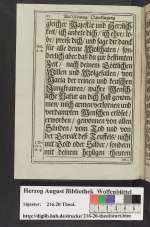 gleicher Majestät und Herrlich-
keit, ich anbete dich, ich ehre, lo-
be, preise dich, und sage dir danck
für alle deine Wolthaten, son-
derlich aber daß du zur bestimmten
Zeit, nach deinem Göttlichen
Willen und Wolgefallen, von
Maria der reinen und keuschen
Jungfrauen, wahre Mensch-
liche Natur an dich hast genom-
men, mich armen verlornen und
verdamten Menschen erlöset,
erworben, gewonnen von allen
Sünden, vom Tod und von
der Gewalt des Teuffels, nicht
mit Gold oder Silber, sondern
mit deinem heiligen theuren
Herzog August Bibliothek Wolfenbüttel
Signatur: 216.20 Theol.
http://diglib.hab.de/drucke/216-20-theol/start.htm